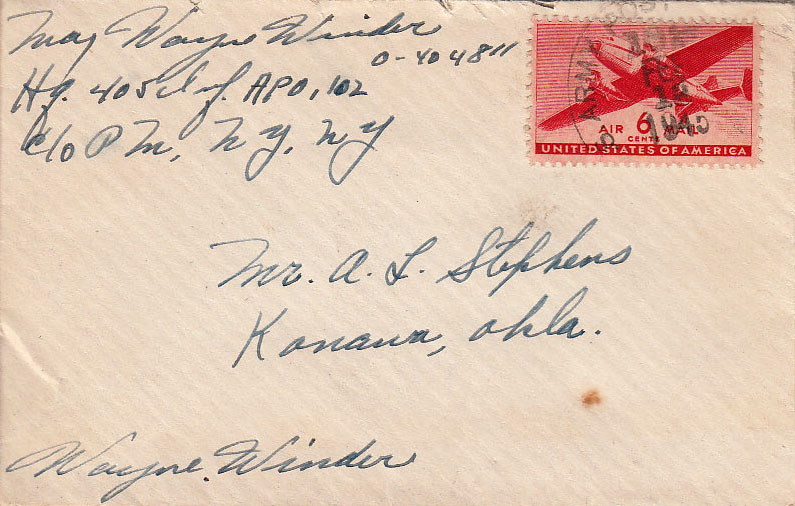 Maj Wayne Winder
0-404811
Hq. 405 Inf. APO, 102
c/o PM, N Y, N Y
ARMY POST
1945
AIR 6 MAIL
CENTS
UNITED STATES OF AMERICA
Mr. A. L. Stephens
Konawa, Okla.
Wayne Winder